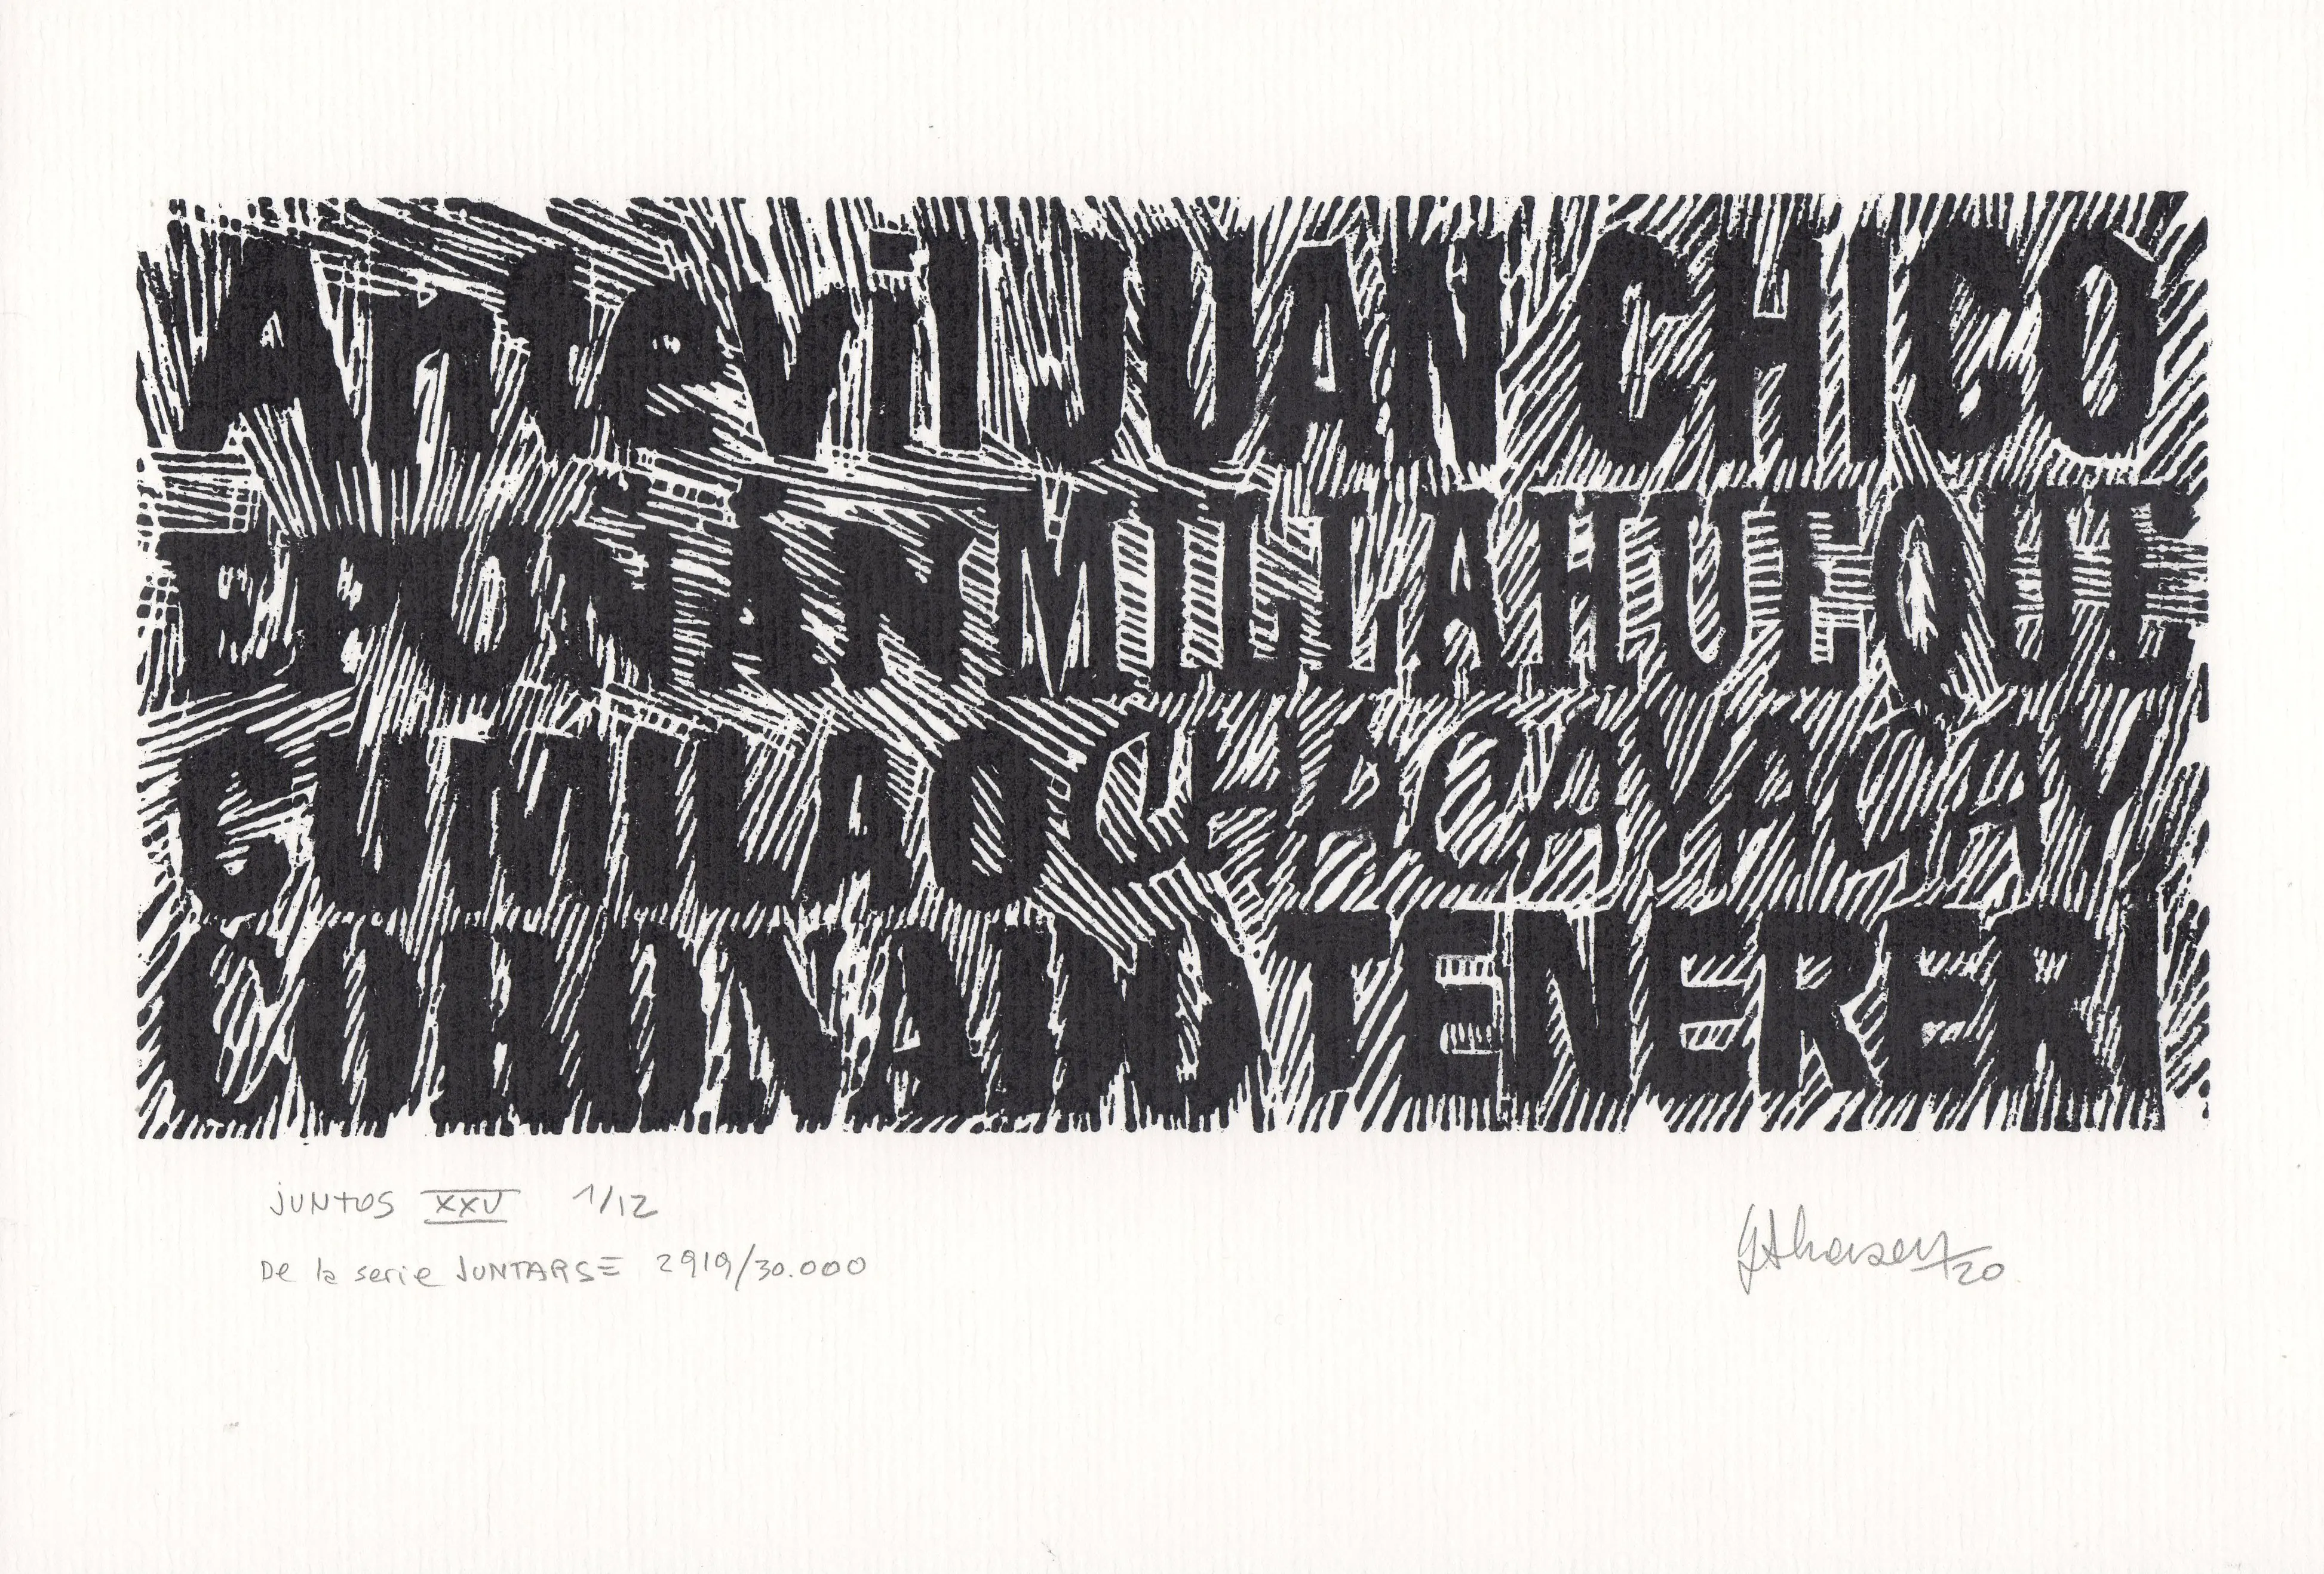 Antevil JUAN CHICO
EPUÑAN MILLAHUEQUE
CUMILAO CHACAYACAY
TENERERI
JUNTOS XXV 1/12
De la serie JUNTARSE 2919/30.000